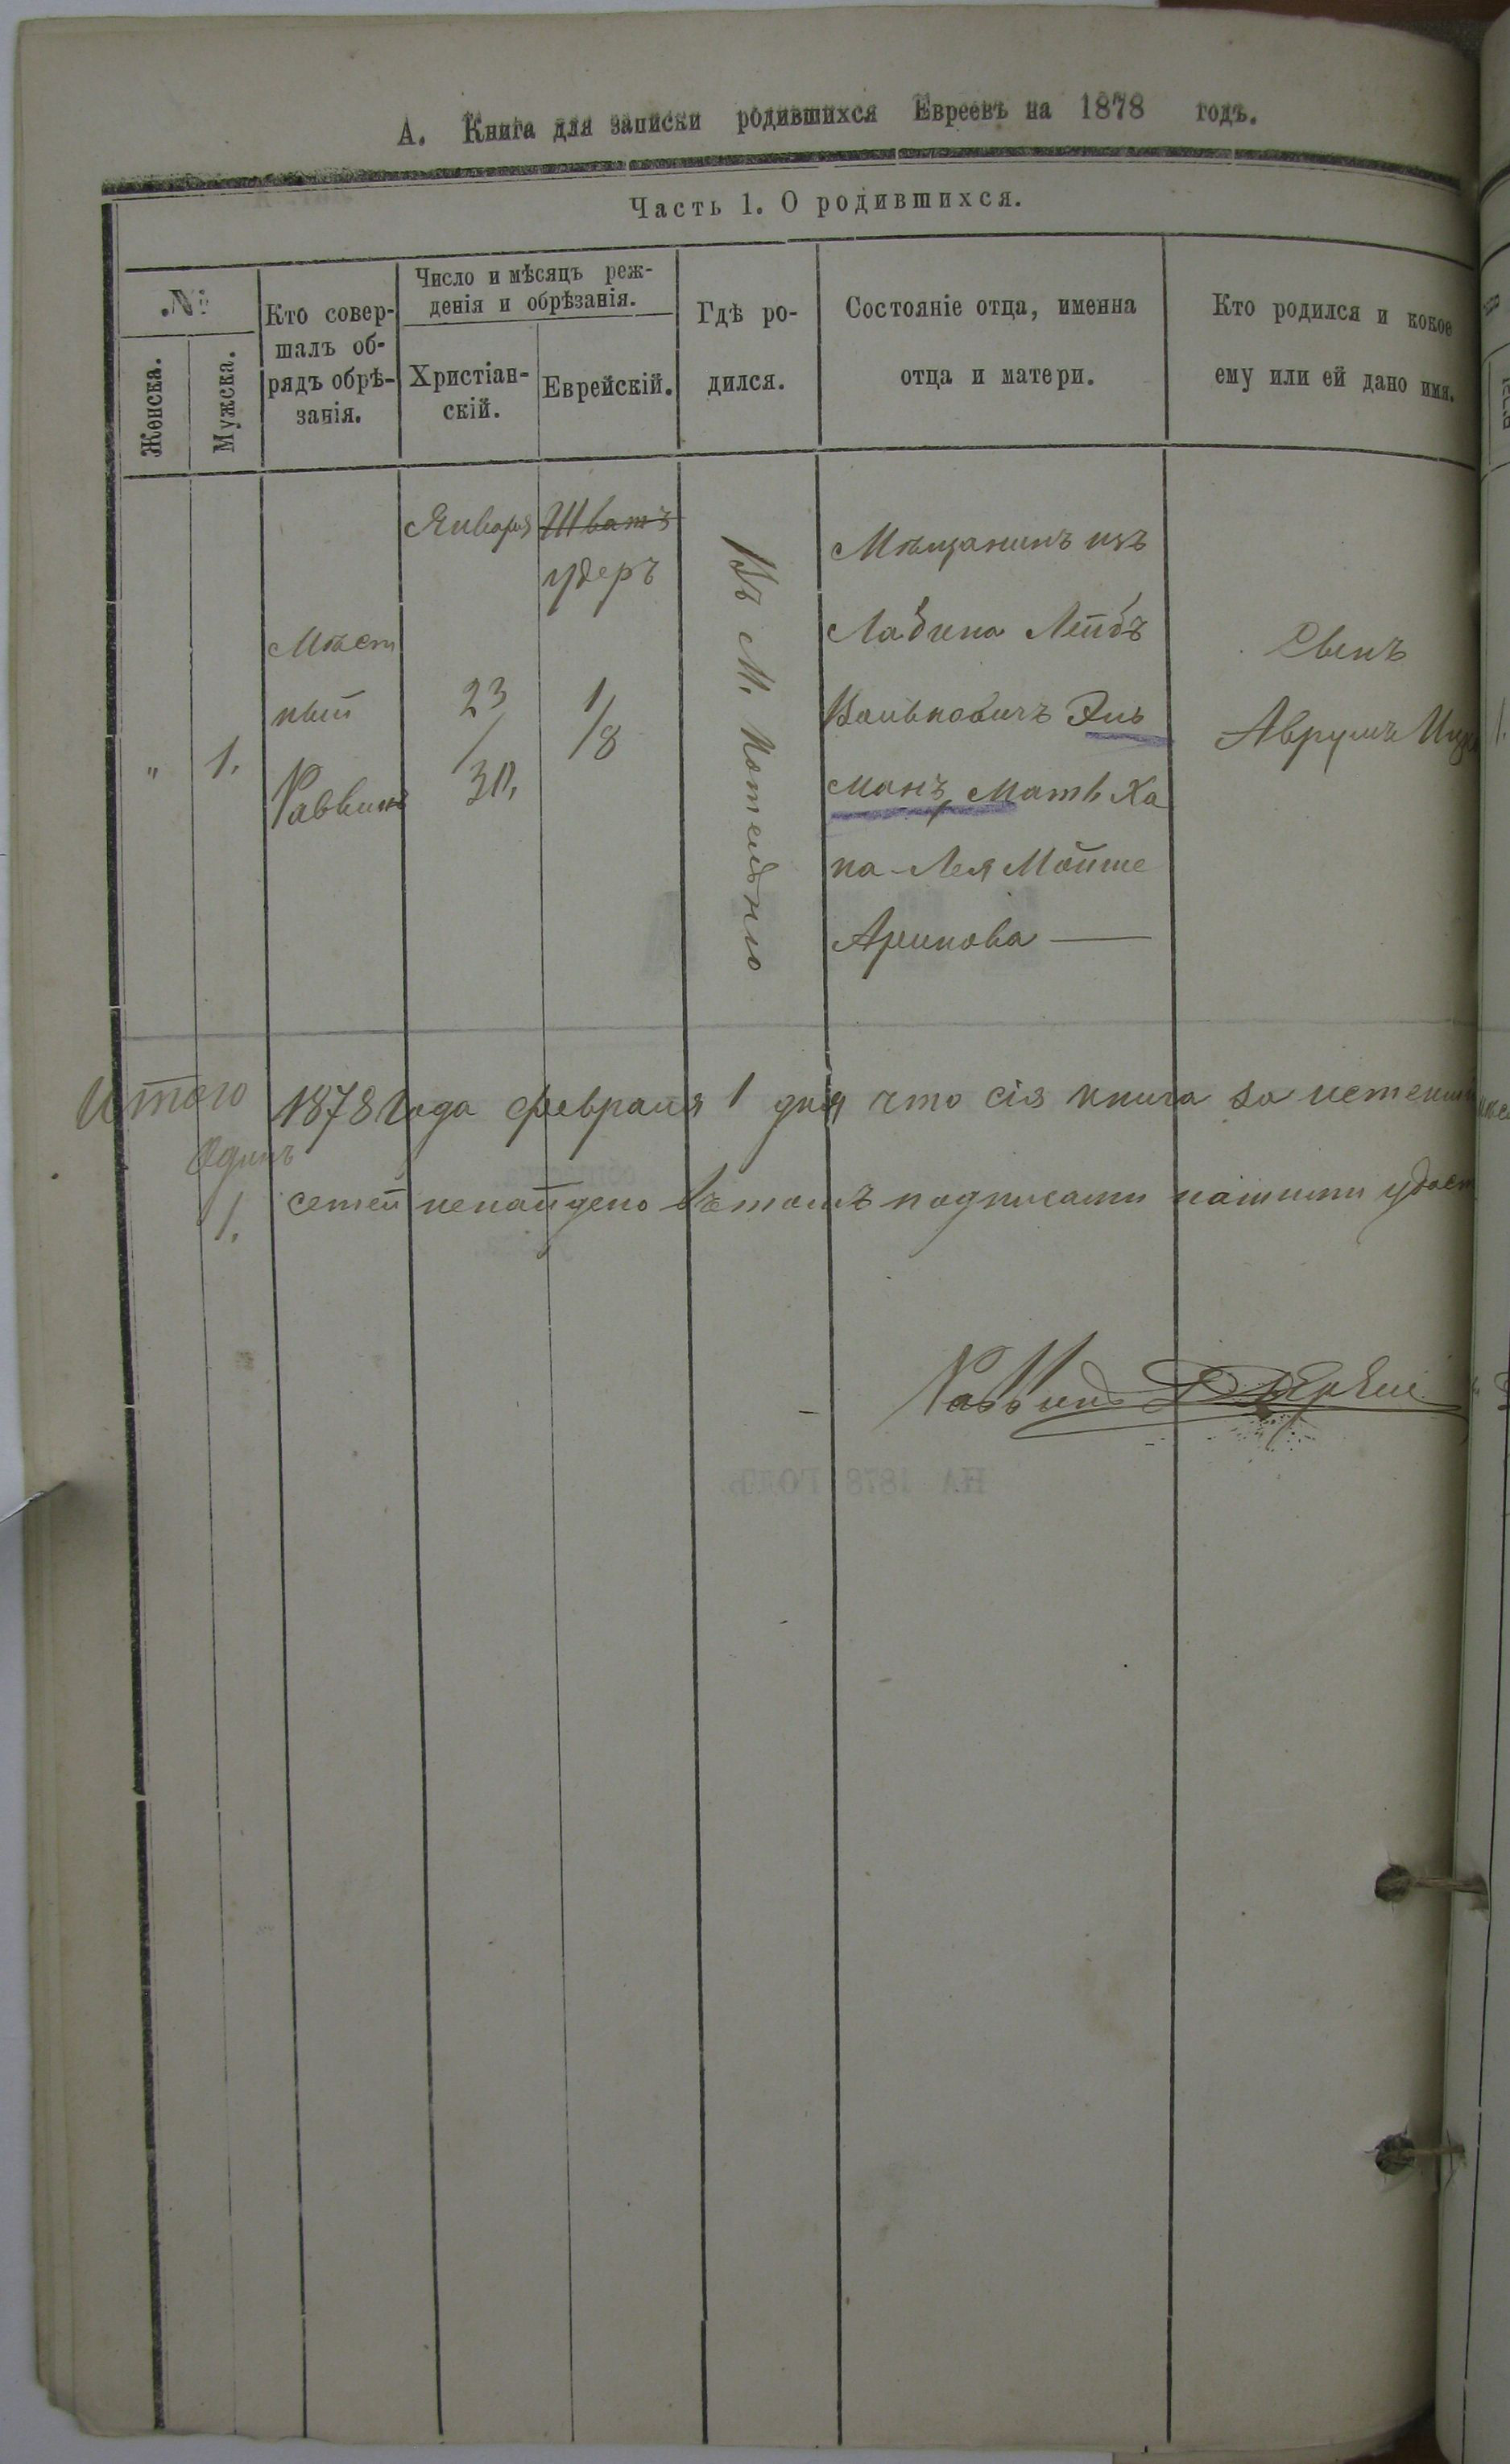 А. Книга для записки родившихся Евреевъ на 1878 годъ.
Часть 1. О родившихся.
№
Женска.
Мужска.
Кто совер-
шалъ об-
рядъ обрѣ-
занія.
Число и мѣсяцъ реж-
денія и обрѣзанія.
Христіан-
скій.
Еврейскій.
Гдѣ ро-
дился.
Состояніе отца, именна
отца и матери.
Кто родился и кокое
ему или ей дано имя.
"
1.
Мѣст
ный
Раввинъ
Января
23
/
30.
Шватъ
удеръ
1
/8
Въ М.
Мѣщанинъ изъ
Лейбъ
Вольковичъ Эль
манъ, Мать Ха
на-Лея Мойше
Аринова —
Сынъ
Аврумъ
Итого
Одинъ
1.
1878 Года февраля 1 дня что сія книга за
сетей ненайдено въ томъ подписами нашими
Раввинъ
НА 1878 ГОДЪ.